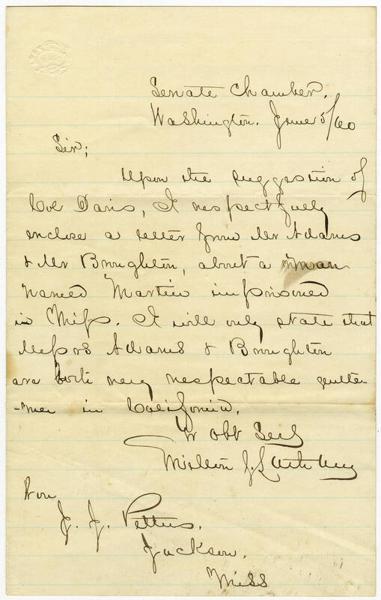 Senate Chamber.
Washington. June 5/60
Sir;
Upon the suggestion of
Col Davis, I respectfully
enclose a letter from Mr Adams
& Mr Broughton, about a man
named Martin imprisoned
in Miss. I will only state that
Messrs Adams & Broughton
are both very respectable gentle
-men in California.
Yr Obt Sert
Milton S. Latham
Hon
J. J. Pettus.
Jackson.
Miss